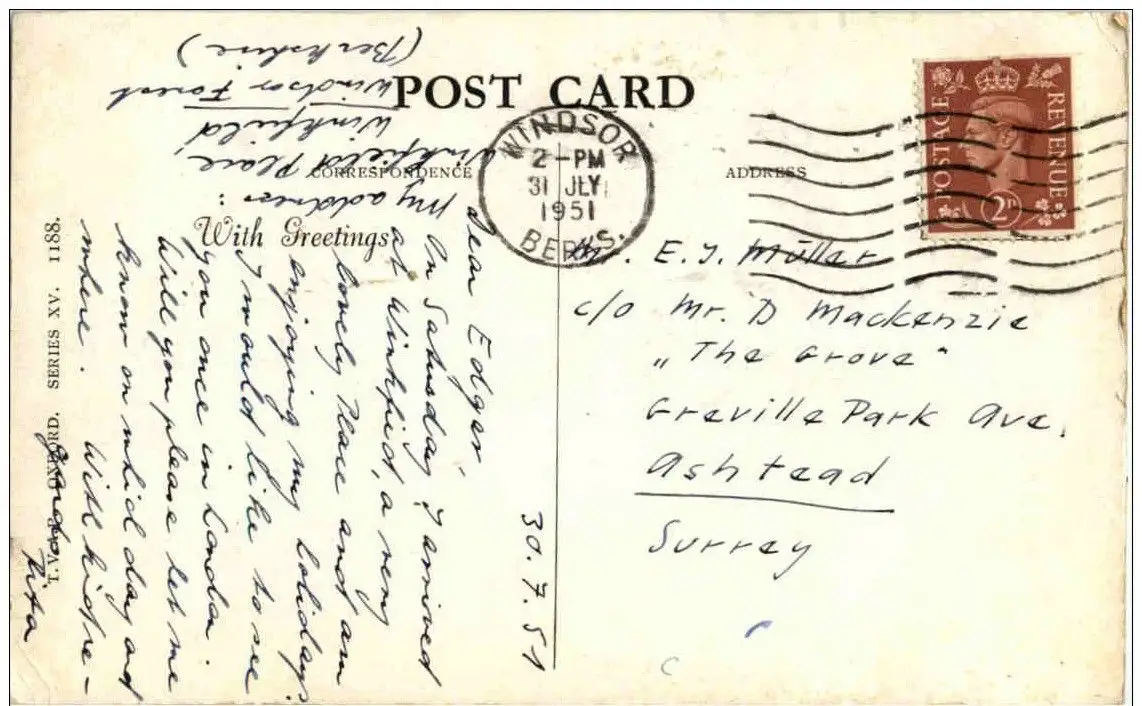 POST CARD
CORRESPONDENCE
ADDRESS
With Greetings
WINDSOR
2 - PM
31 JLY
1951
BERKS.
POSTAGE
REVENUE
2D
Mr. E. J. Müller
c/o Mr. D Mackenzie
„The Grove"
Greville Park Ave.
Ashtead
Surrey
30.7.51
Dear Edgar,
On Saturday I arrived
at Winkfield, a very
lovely Place and am
enjoying my holidays.
I would like to see
you once in London.
Will you please let me
know on which day and
where. With kindre-
gards
Rita
My address:
Winkfield Place,
Winkfield
Windsor Forest
(Berkshire)
SERIES XV. 1188.